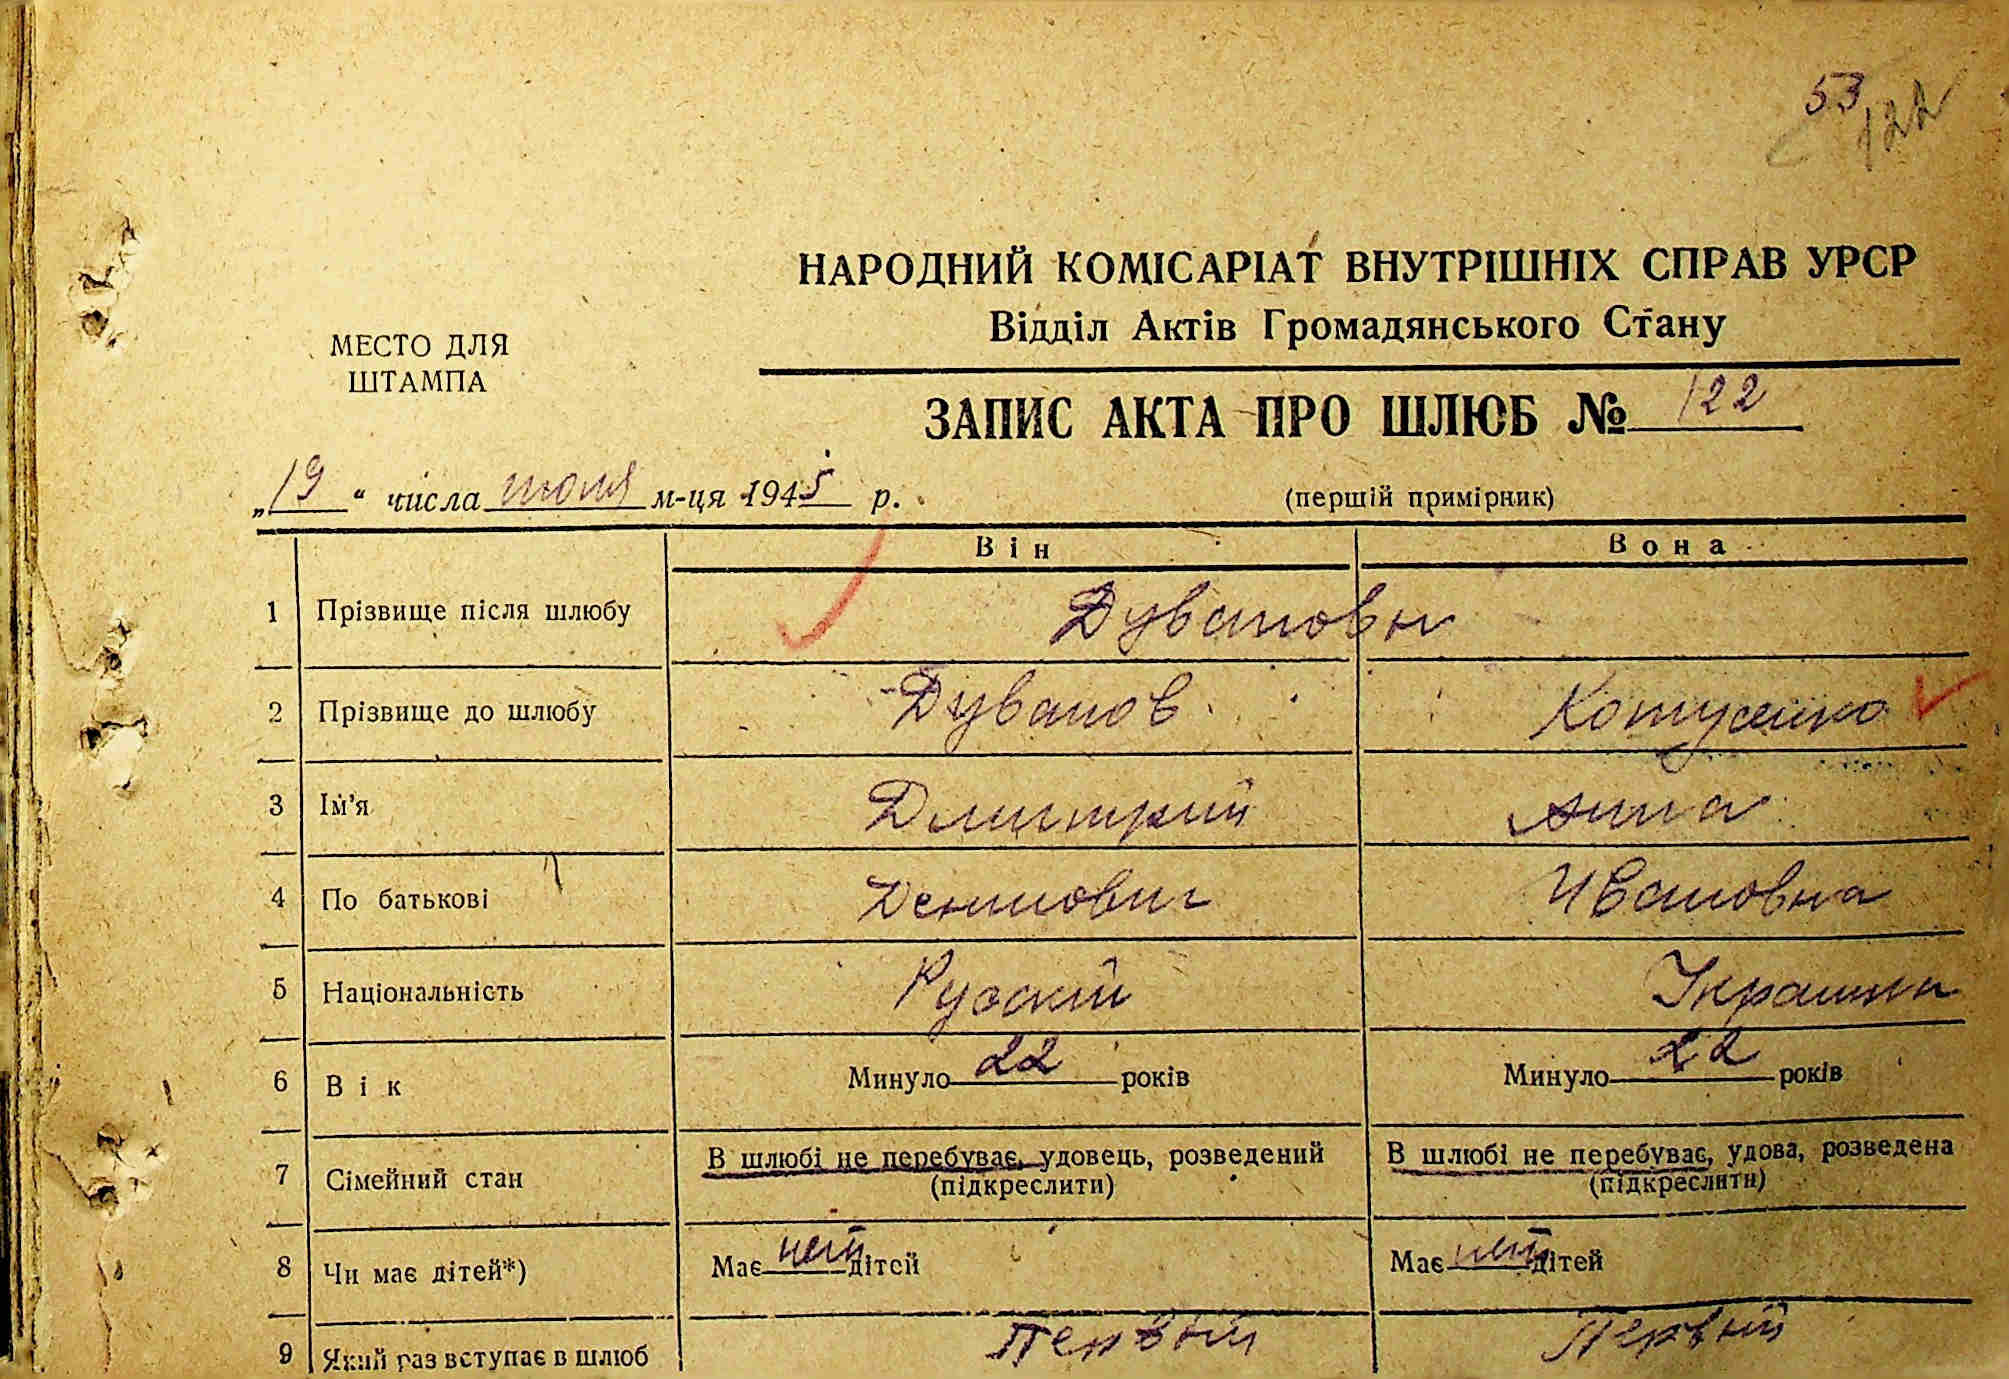 53
122
НАРОДНИЙ КОМІСАРІАТ ВНУТРІШНІХ СПРАВ УРСР
Відділ Актів Громадянського Стану
МЕСТО ДЛЯ
ШТАМПА
ЗАПИС АКТА ПРО ШЛЮБ № 122
„19“ числа июля м-ця 1945 р.
(перший примірник)
Він Вона
1 Прізвище після шлюбу Дувановы
2 Прізвище до шлюбу Дуванов
3 Ім'я Дмитрий Анна
4 По батькові Денисович Ивановна
5 Національність Русский Украинка
6 Вік Минуло 22 років Минуло 22 років
7 Сімейний стан В шлюбі не перебуває, удовець, розведений В шлюбі не перебуває, удова, розведена
(підкреслити) (підкреслити)
8 Чи має дітей*) Має нет дітей Має нет дітей
9 Який раз вступає в шлюб Первый Первый